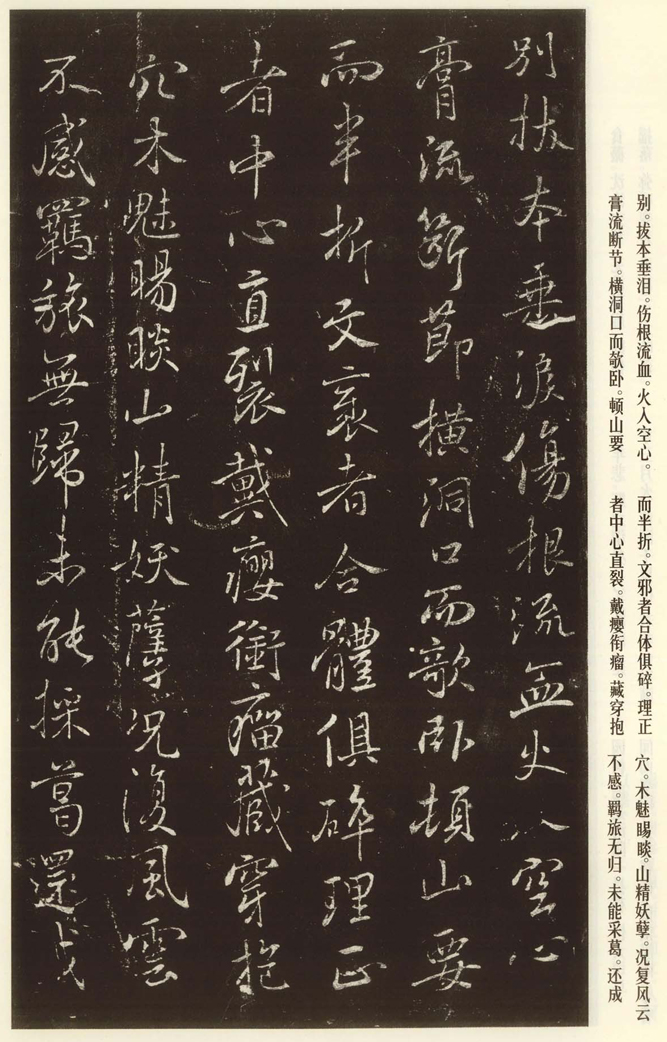 别。拔本垂泪。伤根流血。火入空心。
膏流断节。横洞口而欹卧。顿山要
而半折。文邪者合体俱碎。理正
者中心直裂。戴瘿衔瘤。藏穿抱
穴。木魅睗睒。山精妖孽。况复风云
不感。羁旅无归。未能采葛。还成
別拔本垂淚傷根流血火入空心
膏流斷節橫洞口而欹卧頓山要
而半折文衺者合體俱碎理正
者中心直裂戴癭銜瘤藏穿抱
穴木魅睗睒山精妖孽况復風雲
不感羈旅無歸未能採葛還成